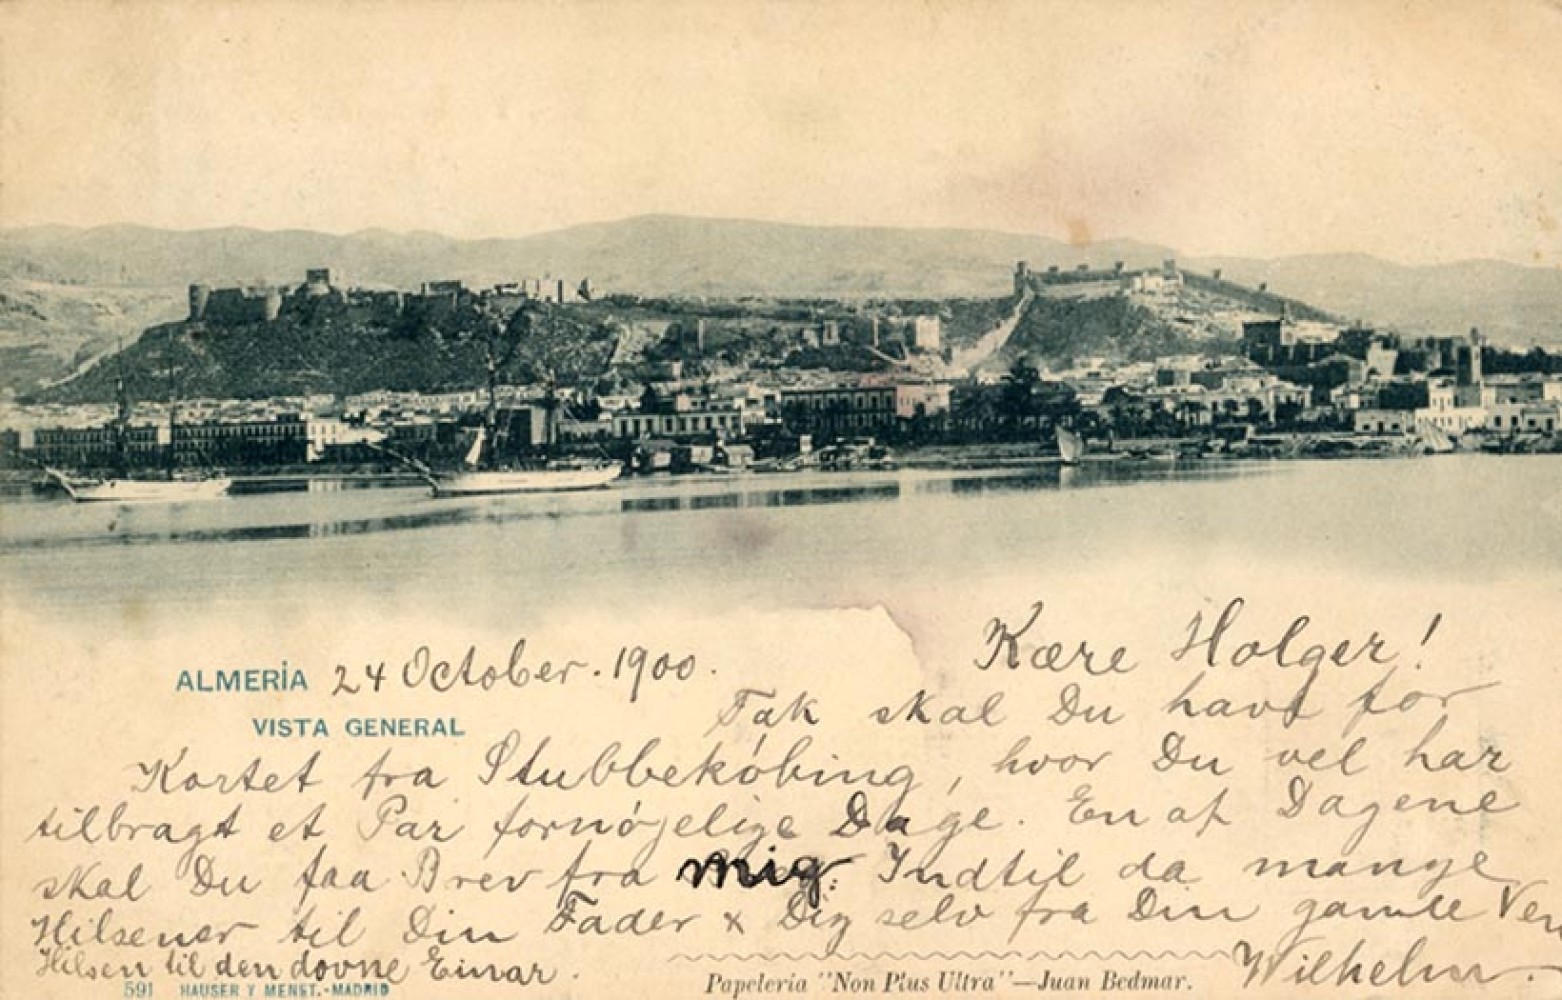 Kære Holger!
ALMERÍA 24 October. 1900.
Tak skal Du have for
VISTA GENERAL
Kortet fra Stubbekóbing, hvor Du vel har
tilbragt et Par fornójelige Dage. En af Dagene
skal Du faa Brev fra mig. Indtil da mange
Hilsener til Din Fader & Dig selv fra Din gamle Ven
Wilhelm.
Hilsen til den dovne Einar.
591 HAUSER Y MENET.-MADRID
Papeleria "Non Plus Ultra"—Juan Bedmar.